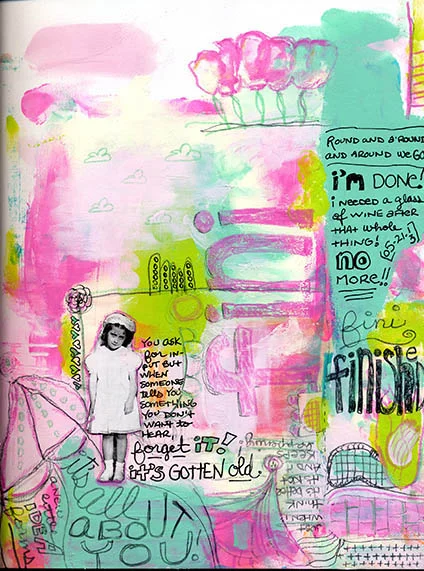 ROUND AND A'ROUND
AND AROUND WE GO
i'm DONE!
i NEEDED A glass
OF WINE AFTER
THAT WHOLE
THING!
NO
MORE!!
fini
finishe
fini
YOU ASK
for IN-
PUT BUT
WHEN
SOMEONE
TELLS YOU
SOMETHING
YOU DON'T
WANT to
HEAR,
forget iT!
it's GOTTEN old
it's
all
ABOUT
YOU!